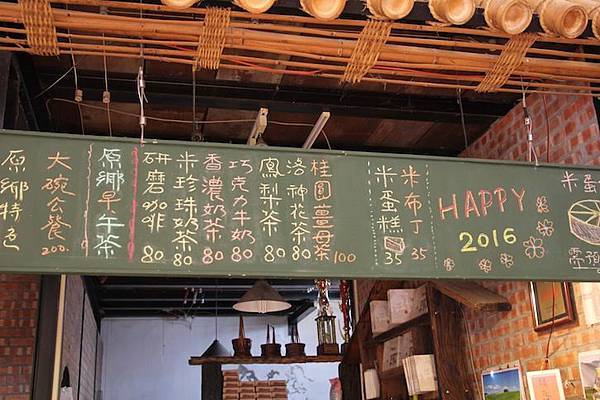 原鄉特色
大碗公餐 200.
原鄉早.午茶
研磨咖啡 80
米珍珠奶茶 80
香濃奶茶 80
巧克力牛奶 80
鳳梨茶 80
洛神花茶 80
桂圓薑母茶 100
米蛋糕 35
米布丁 35
HAPPY
2016
米蛋